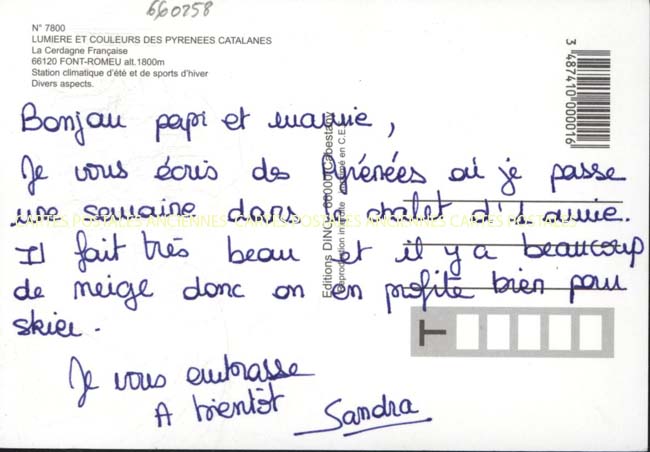 660258
N° 7800
LUMIERE ET COULEURS DES PYRENEES CATALANES
La Cerdagne Française
66120 FONT-ROMEU alt.1800m
Station climatique d'été et de sports d'hiver
Divers aspects.
3 487410 000016
Bonjour papi et mamie,
Je vous écris des Pyrénées où je passe
une semaine dans le chalet d'1 amie.
Il fait très beau et il y a beaucoup
de neige donc on en profite bien pour
skier.
Je vous embrasse
A bientôt
Sandra
Editions DINO 66000 Cabestany
Reproduction interdite en C.E.
CARTES POSTALES ANCIENNES CARTES POSTALES ANCIENNES CARTES POSTALES
T